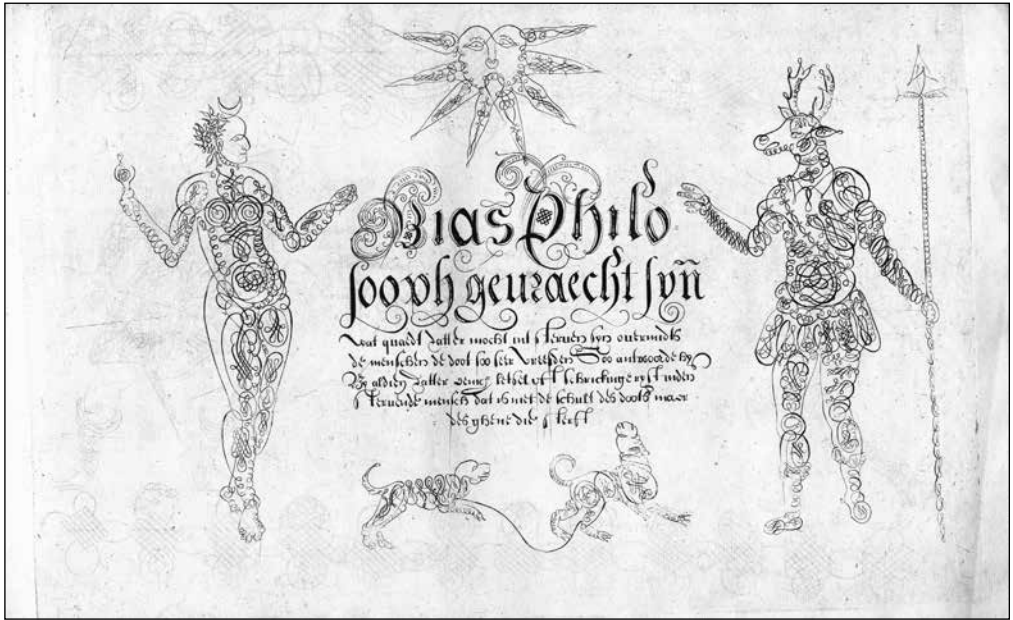 Bias Philo
sooph geuraecht syñ
wat quaedt datter mocht int steruen syn ouermidts
de menschen de doot soo seer vreesden Soo antwoorde hy
By aldien datter eenich letsel oft schrickinge ryst inden
steruende mensch dat is niet de schult des doots maer
des ghene die sterft